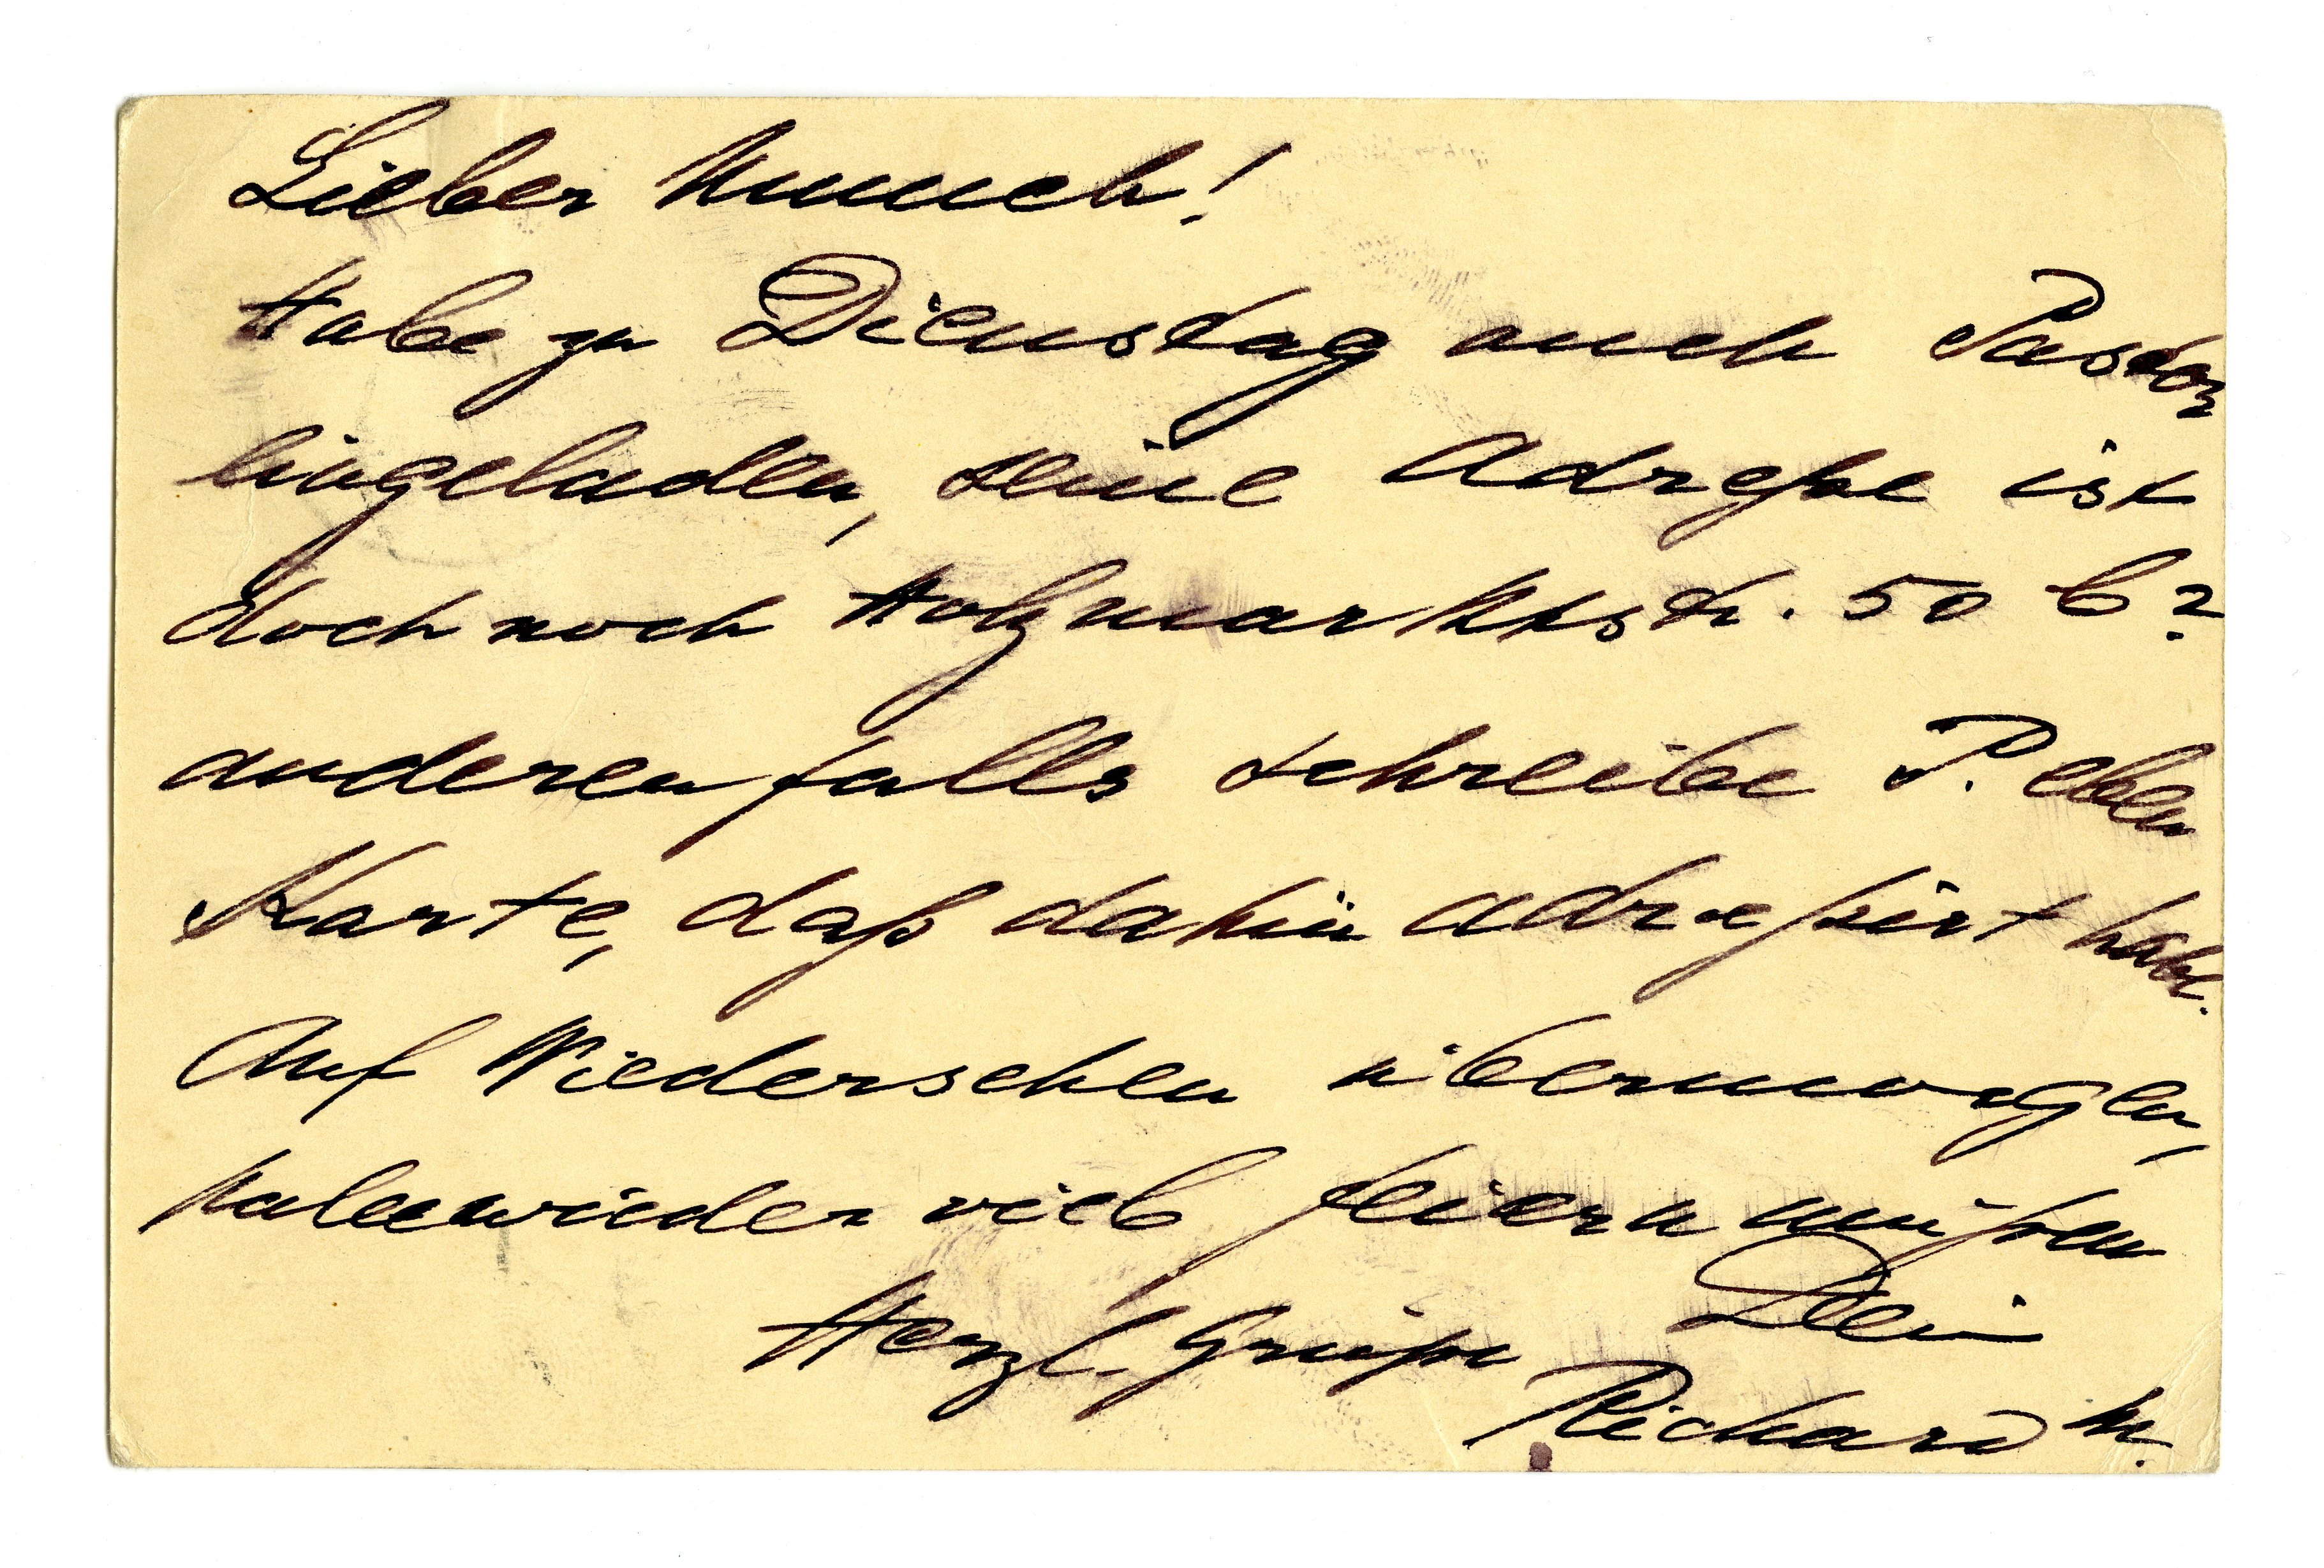 Lieber Munch!
Habe zu Dienstag auch Pastor
hingeladen, seine Adreße ist
doch noch Holzmarktstr. 50 b?
anderenfalls schreibe P. eben
Karte, daß dahin adreßirt habe.
Auf Wiedersehen übermorgen,
wieder viel feiern müßen
Dein
Herzl. Grüße
Richard M.